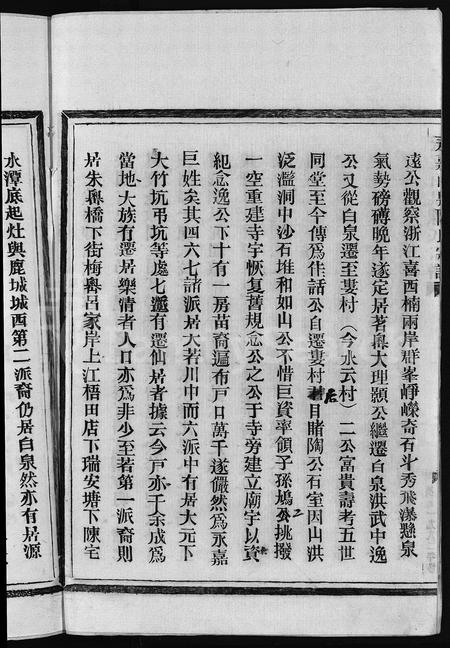 遠公觀察浙江喜西楠兩岸群峯崢嶸奇石斗秀飛瀑懸泉
氣勢磅礡晚年遂定居著粵大理顥公繼遷白泉洪武中逸
公又從白泉遷至婁村（今水云村）二公富貴壽考五世
同堂至今傳爲佳話公自遷婁村后目睹陶公石室因山洪
泛濫洞中沙石堆和如山公不惜巨資率領子孫鳩工挑撥
一空重建寺宇恢复舊規念公之公于寺旁建立廟宇以資
紀念逸公下十有一房苗裔遍布戸口萬千遂儼然爲永嘉
巨姓矣其四六七諸派居大若川中而六派中有居大元下
大竹坑弔坑等處七派有遷仙居者據云今戸亦千余成爲
當地大族有遷居樂清者人口亦爲非少至若第一派裔則
居朱粵橋下街梅粵呂家岸上江梧田店下瑞安塘下陳宅
水潭底起灶與鹿城城西第二派裔仍居白泉然亦有居源